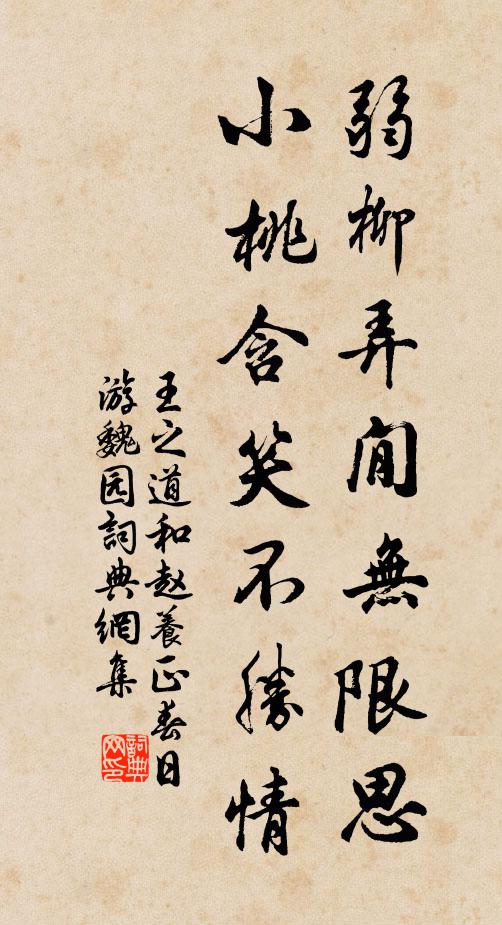 弱柳弄閒無限思
小桃含笑不勝情
王之道和赵養正春日
游魏园詞典網集
詞典
网印